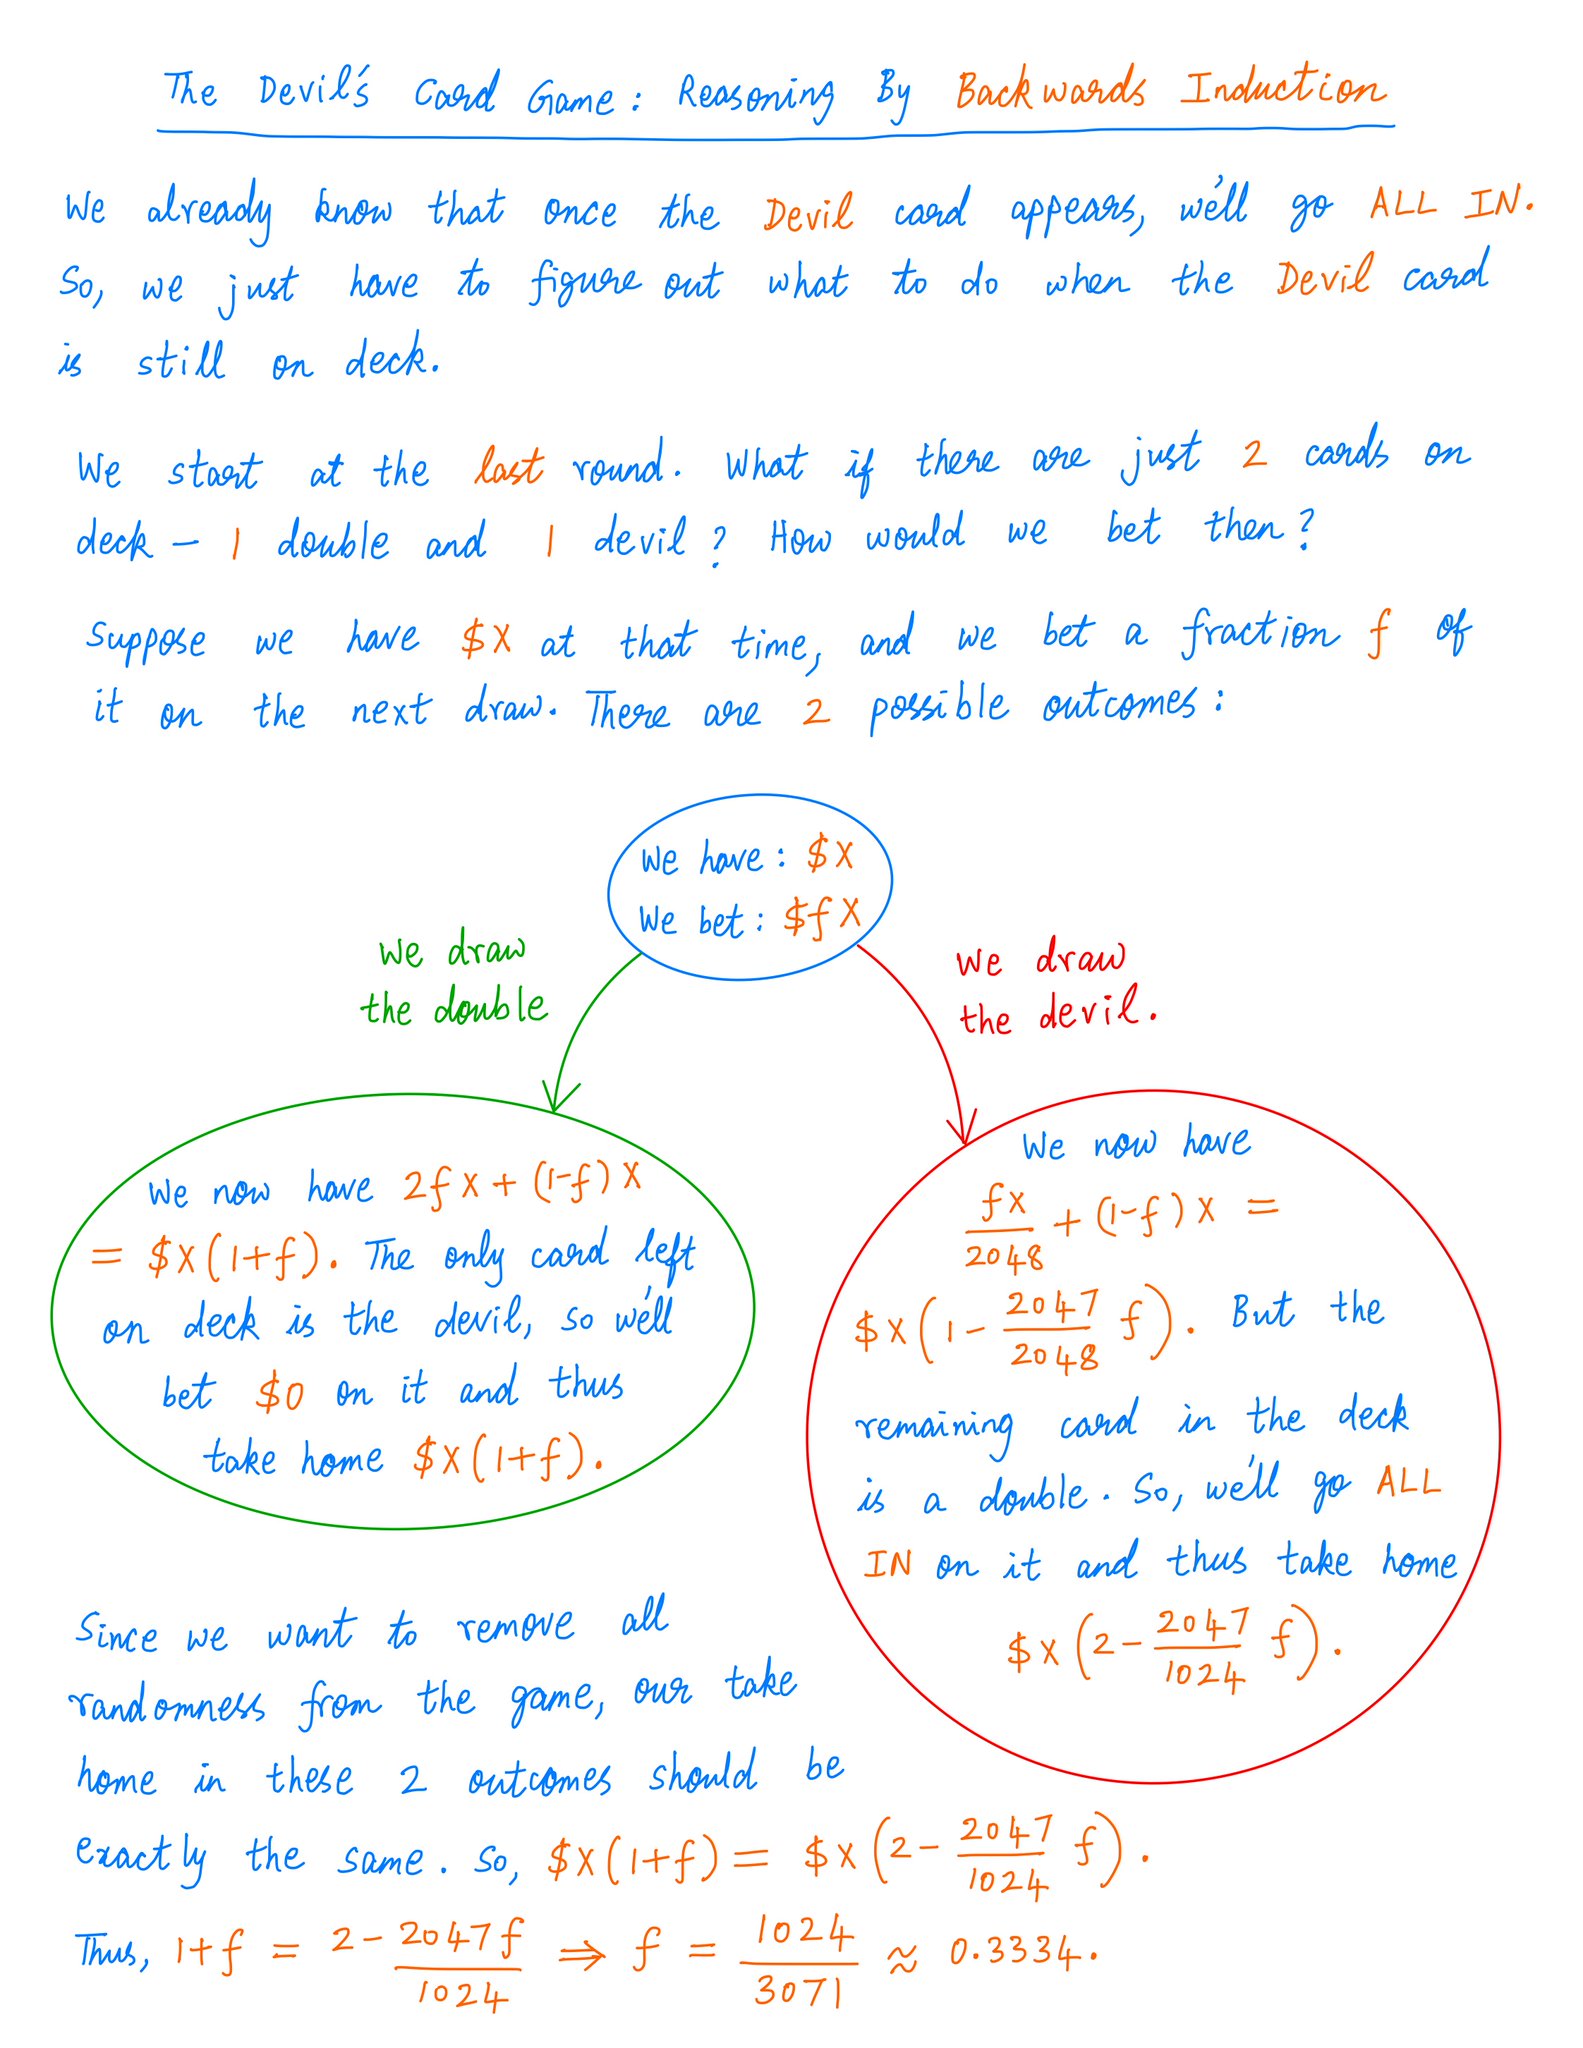 The Devil's Card Game: Reasoning By Backwards Induction
We already know that once the Devil card appears, we'll go ALL IN.
So, we just have to figure out what to do when the Devil card
is still on deck.
We start at the last round. What if there are just 2 cards on
deck - 1 double and 1 devil? How would we bet then?
Suppose we have $X at that time, and we bet a fraction f of
it on the next draw. There are 2 possible outcomes:
We have: $X
We bet: $fX
We draw
the double
We draw
the devil.
We now have 2fX + (1-f)X
= $X(1+f). The only card left
on deck is the devil, so we'll
bet $0 on it and thus
take home $X(1+f).
We now have
fX/2048 + (1-f)X =
$X(1 - 2047/2048 f). But the
remaining card in the deck
is a double. So, we'll go ALL
IN on it and thus take home
$X(2 - 2047/1024 f).
Since we want to remove all
randomness from the game, our take
home in these 2 outcomes should be
exactly the same. So, $X(1+f) = $X(2 - 2047/1024 f).
Thus, 1+f = 2 - 2047f/1024 ⇒ f = 1024/3071 ≈ 0.3334.